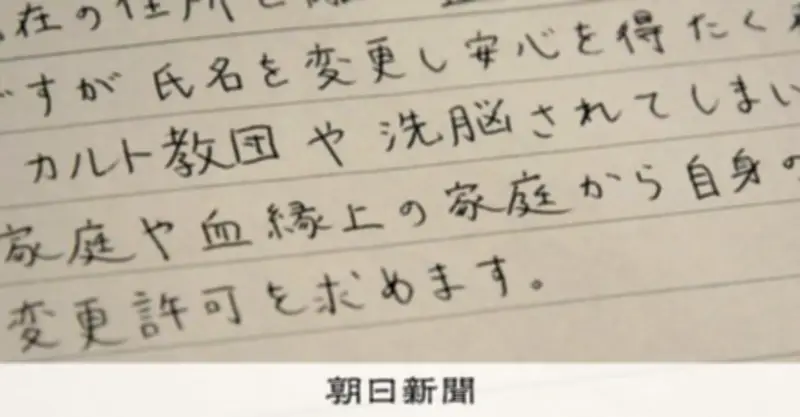 在の住所を
ですが氏名を変更し安心を得たく
カルト教団や洗脳されてしまい
家庭や血縁上の家庭から自身の
変更許可を求めます。
朝日新聞